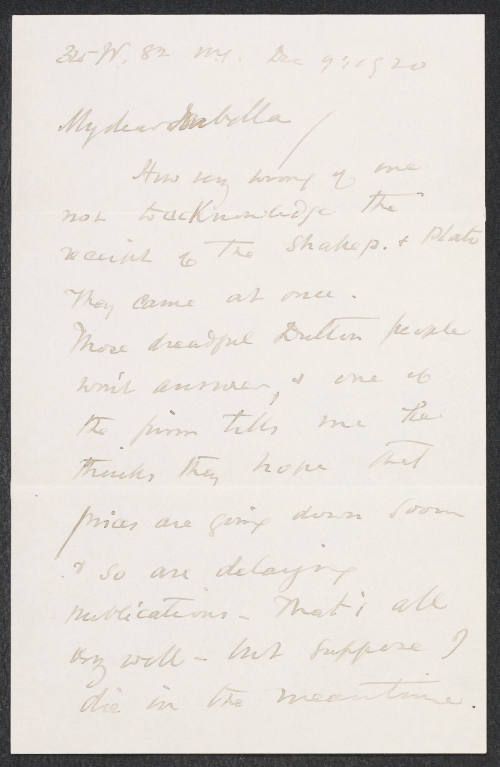 325 W. 82 N.Y. Dec 9th 1920
My dear Isabella
How very wrong of me
not to acknowledge the
receipt of the Shakesp. & Plato
They came at once.
Those dreadful Dutton people
won't answer, & one of
the firm tells me he
thinks they hope that
prices are going down soon
& so are delaying
publications - That's all
very well - but suppose I
die in the meantime.